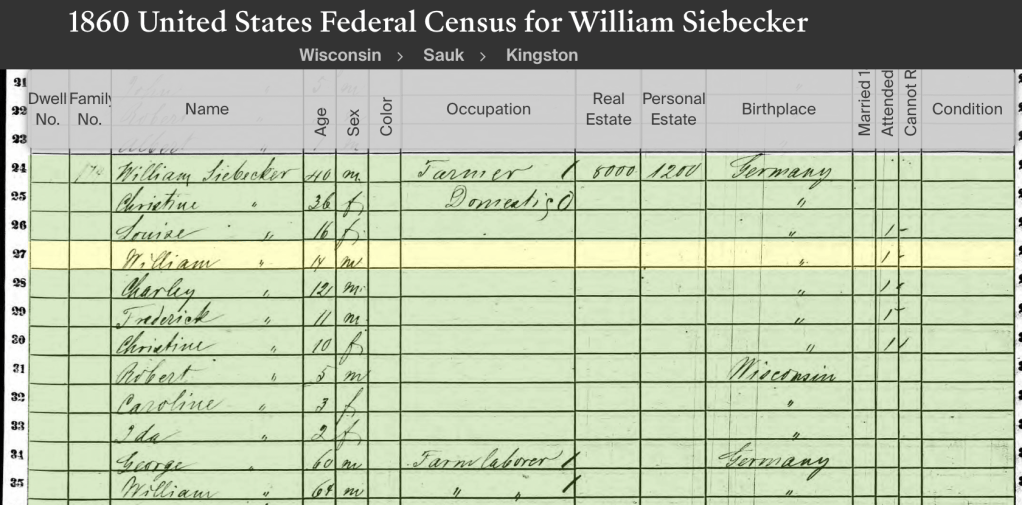 1860 United States Federal Census for William Siebecker
Wisconsin > Sauk > Kingston
Dwell No. Family No. Name Age Sex Color Occupation Real Estate Personal Estate Birthplace Married 1 Attended Cannot R Condition
21
22
23
24 William Siebecker 40 m Farmer 1 8000 1200 Germany
25 Christine " 36 f Domestic 0 "
26 Louise " 16 f " 1
27 William " 14 m " 1
28 Charley " 12 m " 1
29 Frederick " 11 m " 1
30 Christine " 10 f " 1
31 Robert " 5 m Wisconsin
32 Caroline " 3 f "
33 Ida " 2 f "
34 George " 60 m Farm laborer 1 Germany
35 William " m " " 1 "